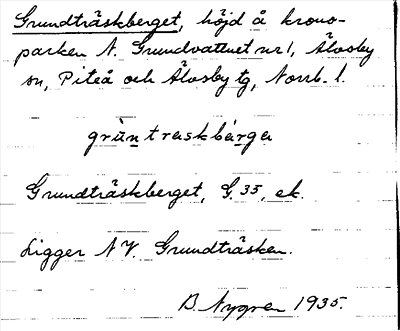 Grundträskberget, höjd å krono-
parken N. Grundvattnet nr 1, Älvsby
sn, Piteå och Älvsby tg, Norrb. l.
grùntraskbǽrga
Grundträskberget, G. 35, ek.
Ligger NV. Grundträsken.
B. Nygren 1935.